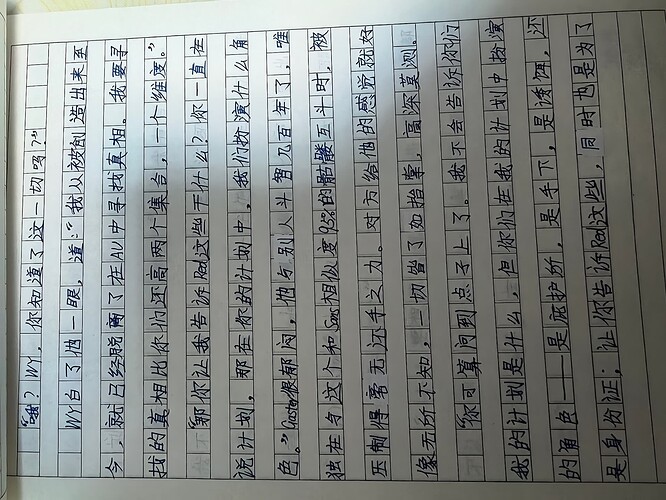 “哦？WY，你知道了这一切吗？”
WY白了他一眼，道：“我从被创造出来至
今，就已经脱离了在AU中寻找真相。我要寻
找的真相比你们还高两个集合，一个维度。”
“那你让我告诉Red这些干什么？你一直在
说计划，那在你的计划中，我们扮演什么角
色。”Gaster很郁闷，他与别人斗智几百年了，唯
独在与这个和Sans相似度95%的骷髅互斗时，被
压制得毫无还手之力。对方给他的感觉就好
像无所不知，一切皆了如指掌，高深莫测。
“你可算问到点子上了。我不会告诉你们
我的计划是什么，但你们在我的计划中扮演
的角色——是庇护所，是手下，是诱饵，还
是身份证；让你告诉Red这些，同时也是为了